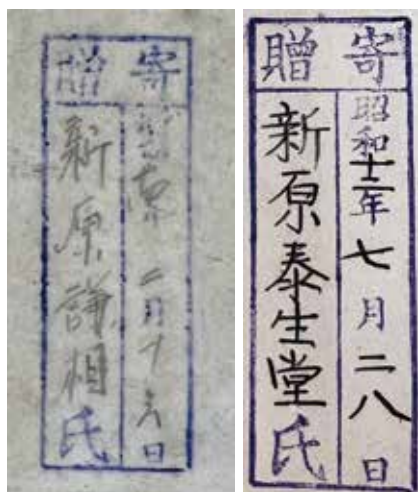 寄贈
二月十六日
新原謙相氏
寄贈
昭和十二年七月二八日
新原泰生堂氏